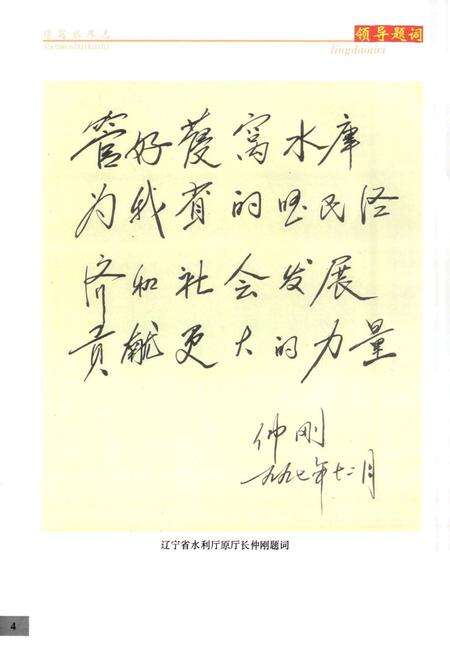 领导题词
lingdaotici
管好葠窝水库
为我省的国民经
济和社会发展
贡献更大的力量
仲刚
一九九七年十二月
辽宁省水利厅原厅长仲刚题词
4